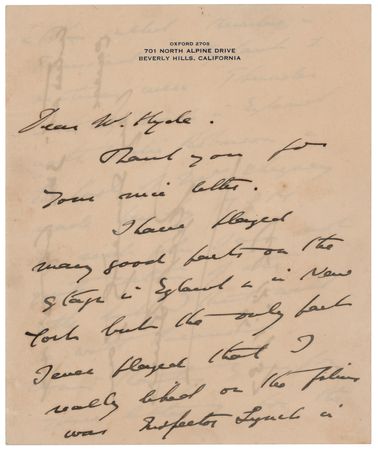 OXFORD 2705
701 NORTH ALPINE DRIVE
BEVERLY HILLS, CALIFORNIA
Dear Mr. Hyde.
Thank you for
your nice letter.
I have played
many good parts on the
Stage in England & in New
York but the only part
I ever played that I
really liked on the films
was Inspector Lynch in